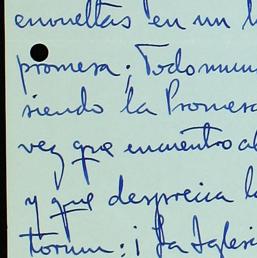 envueltas en un
promesa; Todo
siendo la Promesa
vez que encuentro
y que desprecia
torum: ¡ La Iglesi